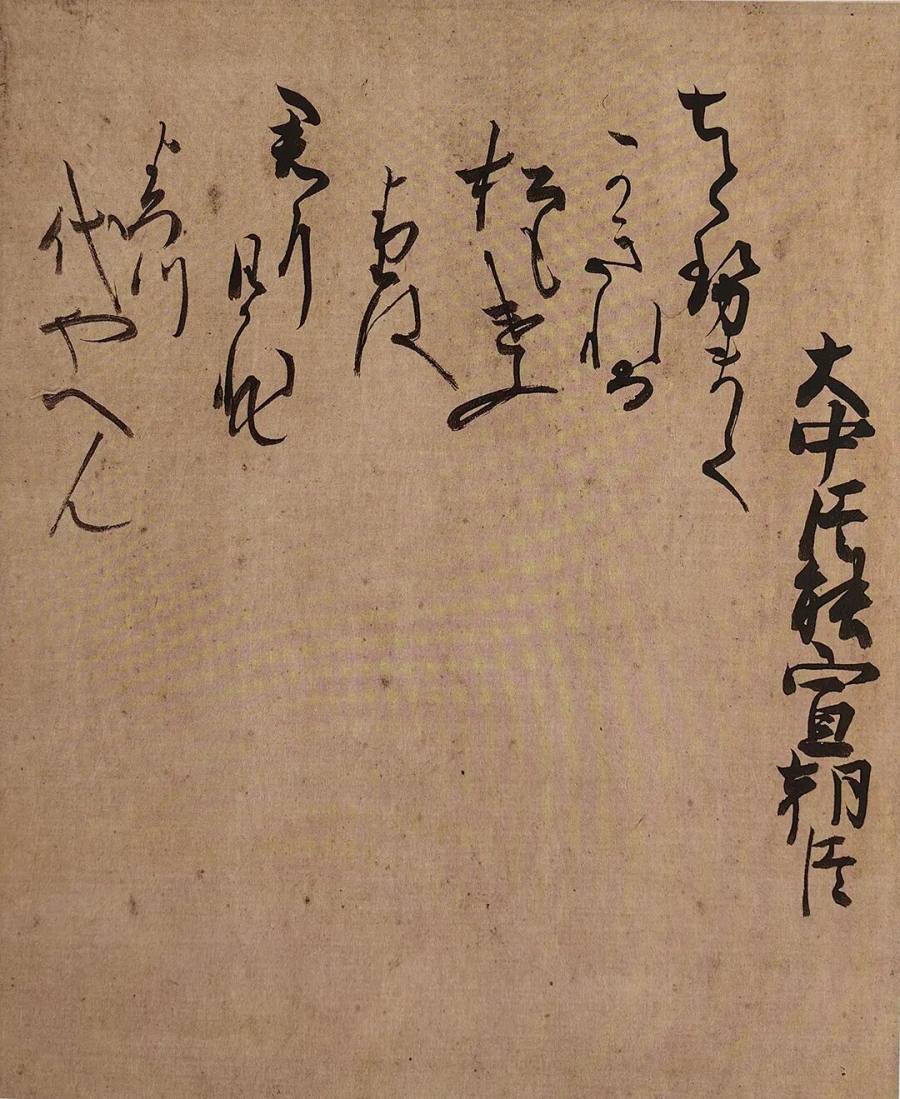 大中臣能宣朝臣
ちとせまて
かきれる
松もけふ
よりは
君に
ひかれて
よろつ
代やへん